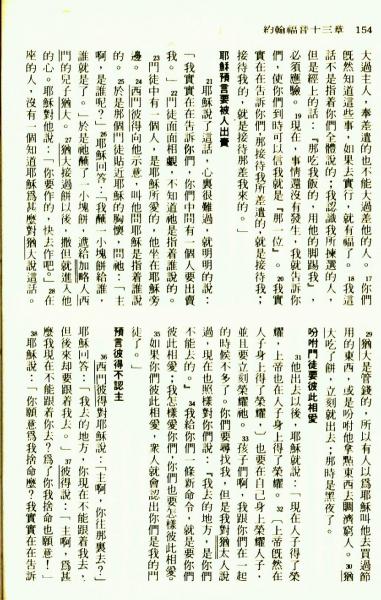 約翰福音十三章 154
大過主人，奉差遣的也不能大過差他的人。17你們
旣然知道這些事，如果去實行，就有福了。18我這
話不是指着你們全體說的；我認識我所揀選的人，
但是經上的話：『那吃我飯的，用他的脚踢我』，
必須應驗。19現在，事情還沒有發生，我就告訴你
們，使你們到時可以信我就是『那一位』。20我實
實在在告訴你們，那接待我所差遣的，就是接待我；
接待我的，就是接待那差我來的。」
耶穌預言要被人出賣
21耶穌說了這話，心裏很難過，就明明的說：
「我實實在在告訴你們，你們中間有一個人要出賣
我。」22門徒面面相覷，不知道祂是指着誰說的。
23門徒中有一個人，是耶穌所愛的，他坐在耶穌旁
邊。24西門彼得向他示意，叫他問耶穌是指着誰說
的。25於是那個門徒貼近耶穌的胸懷，問祂：「主
啊，是誰呢？」26耶穌回答：「我蘸一小塊餅給誰
誰就是了。」於是祂蘸了一小塊餅，遞給加略人西
門的兒子猶大。27猶大接過餅以後，撒但就進入他
的心。耶穌對他說：「你要作的，快去作吧。」28在
座的人，沒有一個知道耶穌爲甚麼對猶大說這話。
29猶大是管錢的，所以有人以爲耶穌叫他去買過節
用的東西，或是吩咐他拿點東西去賙濟窮人。30猶
大吃了餅，立刻就出去；那時是黑夜了。
吩咐門徒要彼此相愛
31他出去以後，耶穌就說：「現在人子得了榮
耀，上帝也在人子身上得了榮耀。32〔上帝旣然在
人子身上得了榮耀，〕也要在自己身上榮耀人子，
並且要立刻榮耀祂。33孩子們啊，我跟你們在一起
的時候不多了。你們要尋找我，但是我對猶太人說
過，現在也照樣對你們說：『我去的地方，是你們
不能去的。』34我給你們一條新命令，就是要你們
彼此相愛；我怎樣愛你們，你們也要怎樣彼此相愛。
35如果你們彼此相愛，衆人就會認出你們是我的門
徒了。」
預言彼得不認主
36西門彼得對耶穌說：「主啊，你往那裏去？」
耶穌回答：「我去的地方，你現在不能跟着我去，
但後來却要跟着我去。」37彼得說：「主啊，爲甚
麼我現在不能跟着你去？爲了你我捨命也願意！」
38耶穌說：「你願意爲我捨命麼？我實實在在告訴